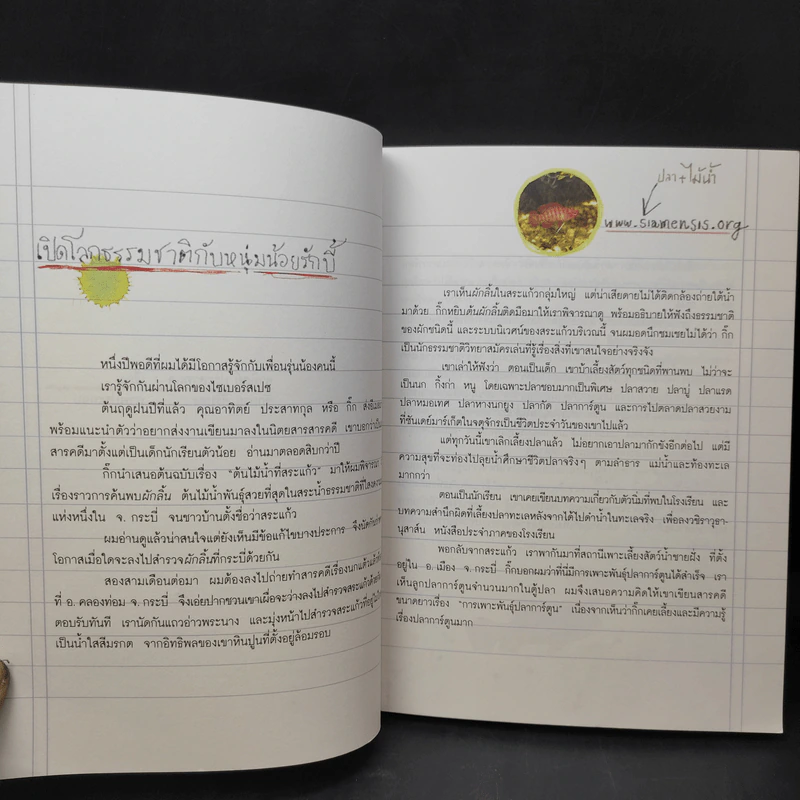 เปิดโลกธรรมชาติกับหนุ่มน้อยรักบี้
หนึ่งปีพอดีที่ผมได้มีโอกาสรู้จักกับเพื่อนรุ่นน้องคนนี้
เรารู้จักกันผ่านโลกของไซเบอร์สเปซ
ต้นฤดูฝนปีที่แล้ว คุณอาทิตย์ ประสาทกุล หรือ กิ๊ก
พร้อมแนะนำตัวว่าอยากส่งงานเขียนมาลงในนิตยสารสารคดี เขาบอกว่าเป็น
สารคดีมาตั้งแต่เป็นเด็กนักเรียนตัวน้อย อ่านมาตลอดสิบกว่าปี
กิ๊กนำเสนอต้นฉบับเรื่อง "ต้นไม้น้ำที่สระแก้ว" มาให้ผมพิจารณา
เรื่องราวการค้นพบผักลิ้น ต้นไม้น้ำพันธุ์สวยที่สุดในสระน้ำธรรมชาติที่ใส
แห่งหนึ่งใน จ. กระบี่ จนชาวบ้านตั้งชื่อว่าสระแก้ว
ผมอ่านดูแล้วน่าสนใจแต่ยังเห็นมีข้อแก้ไขบางประการ จึงนัด
โอกาสเมื่อใดจะลงไปสำรวจผักลิ้นที่กระบี่ด้วยกัน
สองสามเดือนต่อมา ผมต้องลงไปถ่ายทำสารคดีเรื่องนกแต้วแล้ว
ที่ อ. คลองท่อม จ. กระบี่ จึงเอ่ยปากชวนเขาเผื่อจะว่างลงไปสำรวจสระแก้วด้วย
ตอบรับทันที เรานัดกันแถวอ่าวพระนาง และมุ่งหน้าไปสำรวจสระแก้วที่อยู่
เป็นน้ำใสสีมรกต จากอิทธิพลของเขาหินปูนที่ตั้งอยู่ล้อมรอบ
ปลา + ไม้น้ำ
www.siamensis.org
เราเห็นผักลิ้นในสระแก้วกลุ่มใหญ่ แต่น่าเสียดายไม่ได้ติดกล้องถ่ายใต้น้ำ
มาด้วย กิ๊กหยิบต้นผักลิ้นติดมือมาให้เราพิจารณาดู พร้อมอธิบายให้ฟังถึงธรรมชาติ
ของผักชนิดนี้ และระบบนิเวศน์ของสระแก้วบริเวณนี้ จนผมอดนึกชมเชยไม่ได้ว่า กิ๊ก
เป็นนักธรรมชาติวิทยาสมัครเล่นที่รู้เรื่องสิ่งที่เขาสนใจอย่างจริงจัง
เขาเล่าให้ฟังว่า ตอนเป็นเด็ก เขาบ้าเลี้ยงสัตว์ทุกชนิดที่พานพบ ไม่ว่าจะ
เป็นนก กิ้งก่า หนู โดยเฉพาะปลาชอบมากเป็นพิเศษ ปลาสวาย ปลาบู่ ปลาแรด
ปลาหมอเทศ ปลาหางนกยูง ปลากัด ปลาการ์ตูน และการไปตลาดปลาสวยงาม
ที่ซันเดย์มาร์เก็ตในจตุจักรเป็นชีวิตประจำวันของเขาไปแล้ว
แต่ทุกวันนี้เขาเลิกเลี้ยงปลาแล้ว ไม่อยากเอาปลามากักขังอีกต่อไป แต่มี
ความสุขที่จะท่องไปลุยน้ำศึกษาชีวิตปลาจริงๆ ตามลำธาร แม่น้ำและท้องทะเล
มากกว่า
ตอนเป็นนักเรียน เขาเคยเขียนบทความเกี่ยวกับตัวนิ่มที่พบในโรงเรียน และ
บทความสำนึกผิดที่เลี้ยงปลาทะเลหลังจากได้ไปดำน้ำในทะเลจริง เพื่อลงวชิราวุธา-
นุสาส์น หนังสือประจำภาคของโรงเรียน
พอกลับจากสระแก้ว เราพากันมาที่สถานีเพาะเลี้ยงสัตว์น้ำชายฝั่ง ที่ตั้ง
อยู่ใน อ. เมือง จ. กระบี่ กิ๊กบอกผมว่าที่นี่มีการเพาะพันธุ์ปลาการ์ตูนได้สำเร็จ เรา
เห็นลูกปลาการ์ตูนจำนวนมากในตู้ปลา ผมจึงเสนอความคิดให้เขาเขียนสารคดี
ขนาดยาวเรื่อง "การเพาะพันธุ์ปลาการ์ตูน" เนื่องจากเห็นว่ากิ๊กเคยเลี้ยงและมีความรู้
เรื่องปลาการ์ตูนมาก